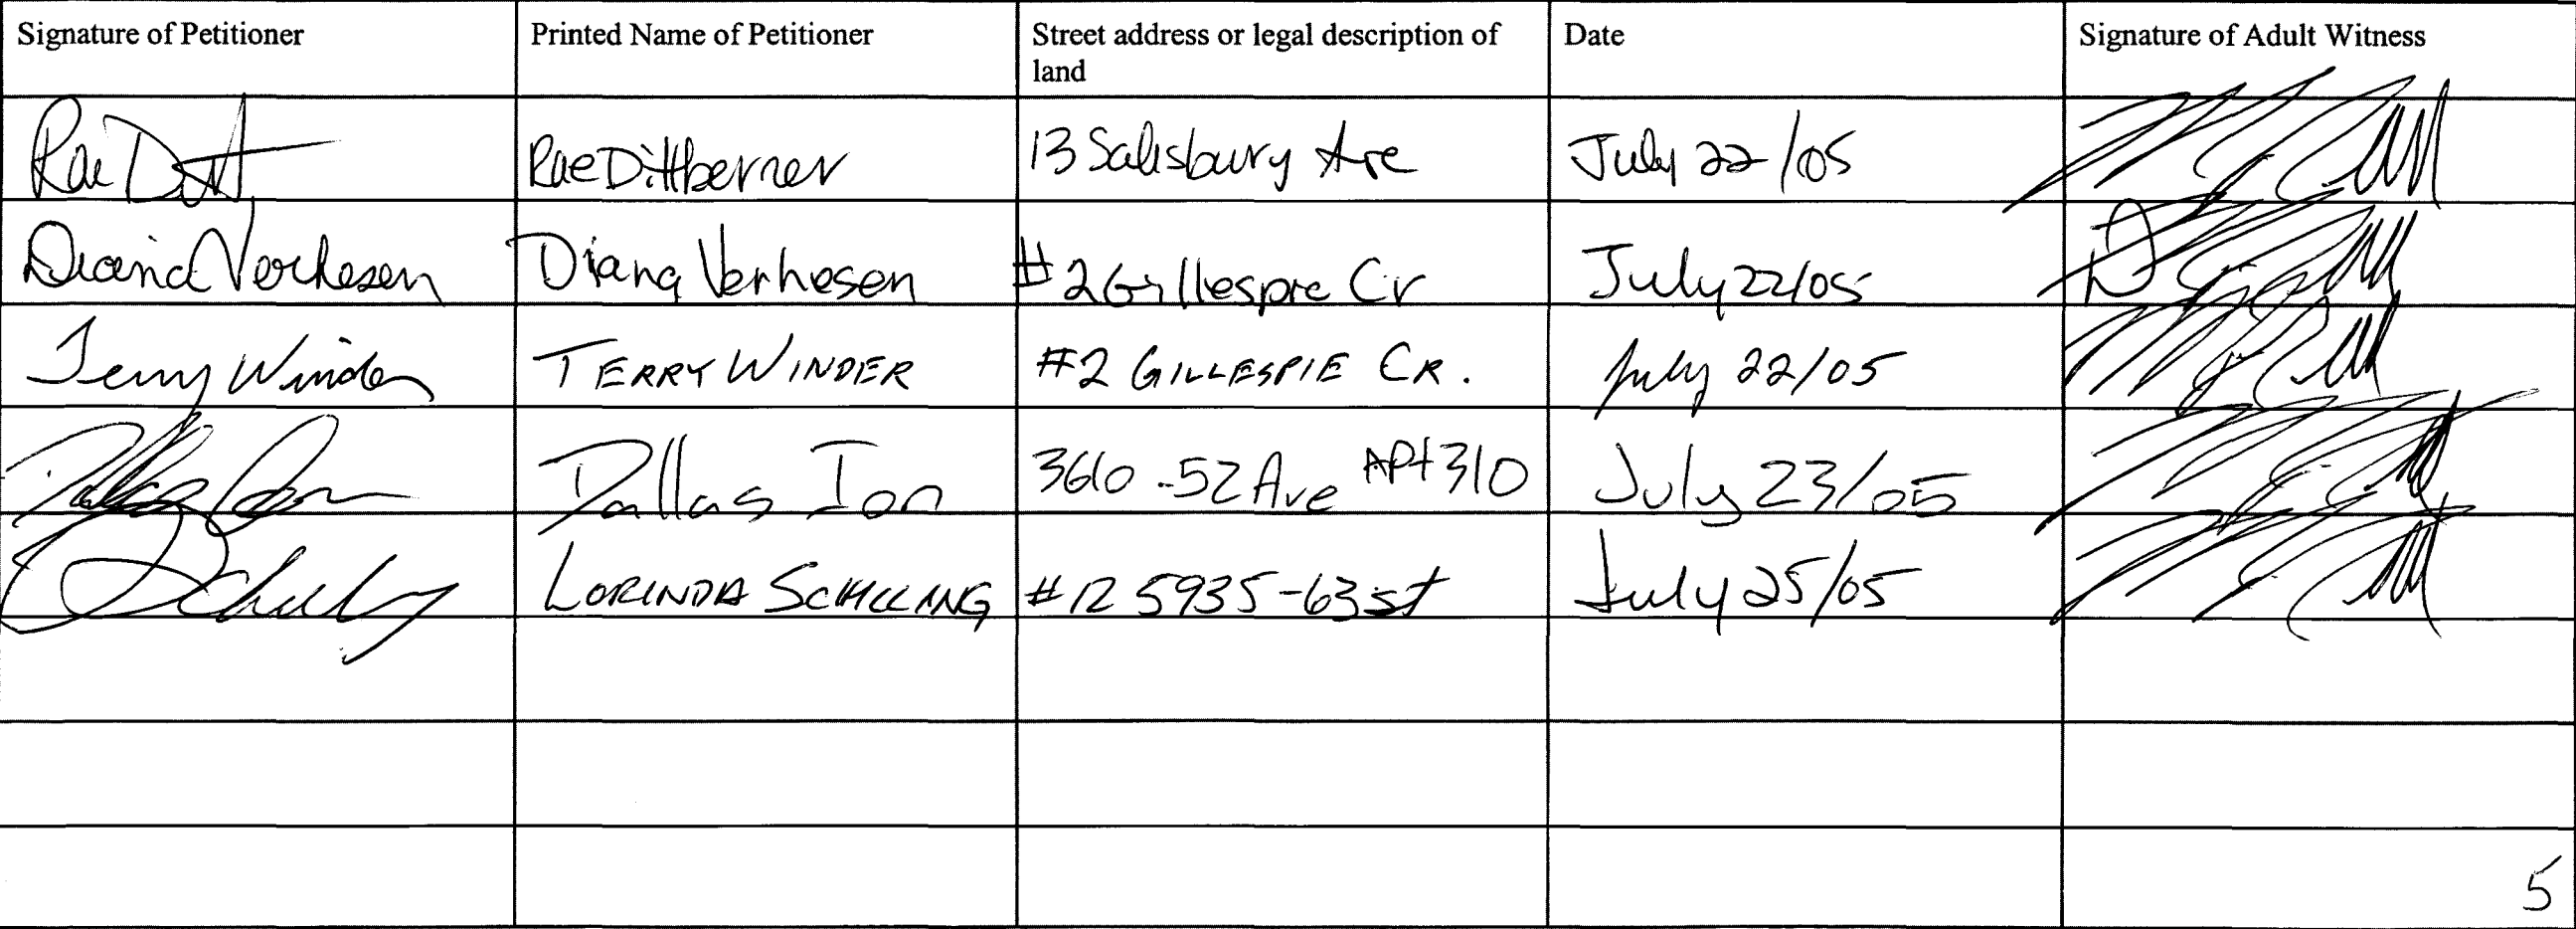 Signature of Petitioner Printed Name of Petitioner Street address or legal description of land Date Signature of Adult Witness
Rae Ditt Rae Dittberner 13 Salisbury Ave July 22/05
Diana Verhesen Diana Verhesen #2 Gillespie Cr July 22/05
Terry Winder TERRY WINDER #2 GILLESPIE CR. July 22/05
Dallas Ion Dallas Ion 3610 -52 Ave APt 310 July 23/05
LORINDA SCHILLING #12 5935-63 st July 25/05
5